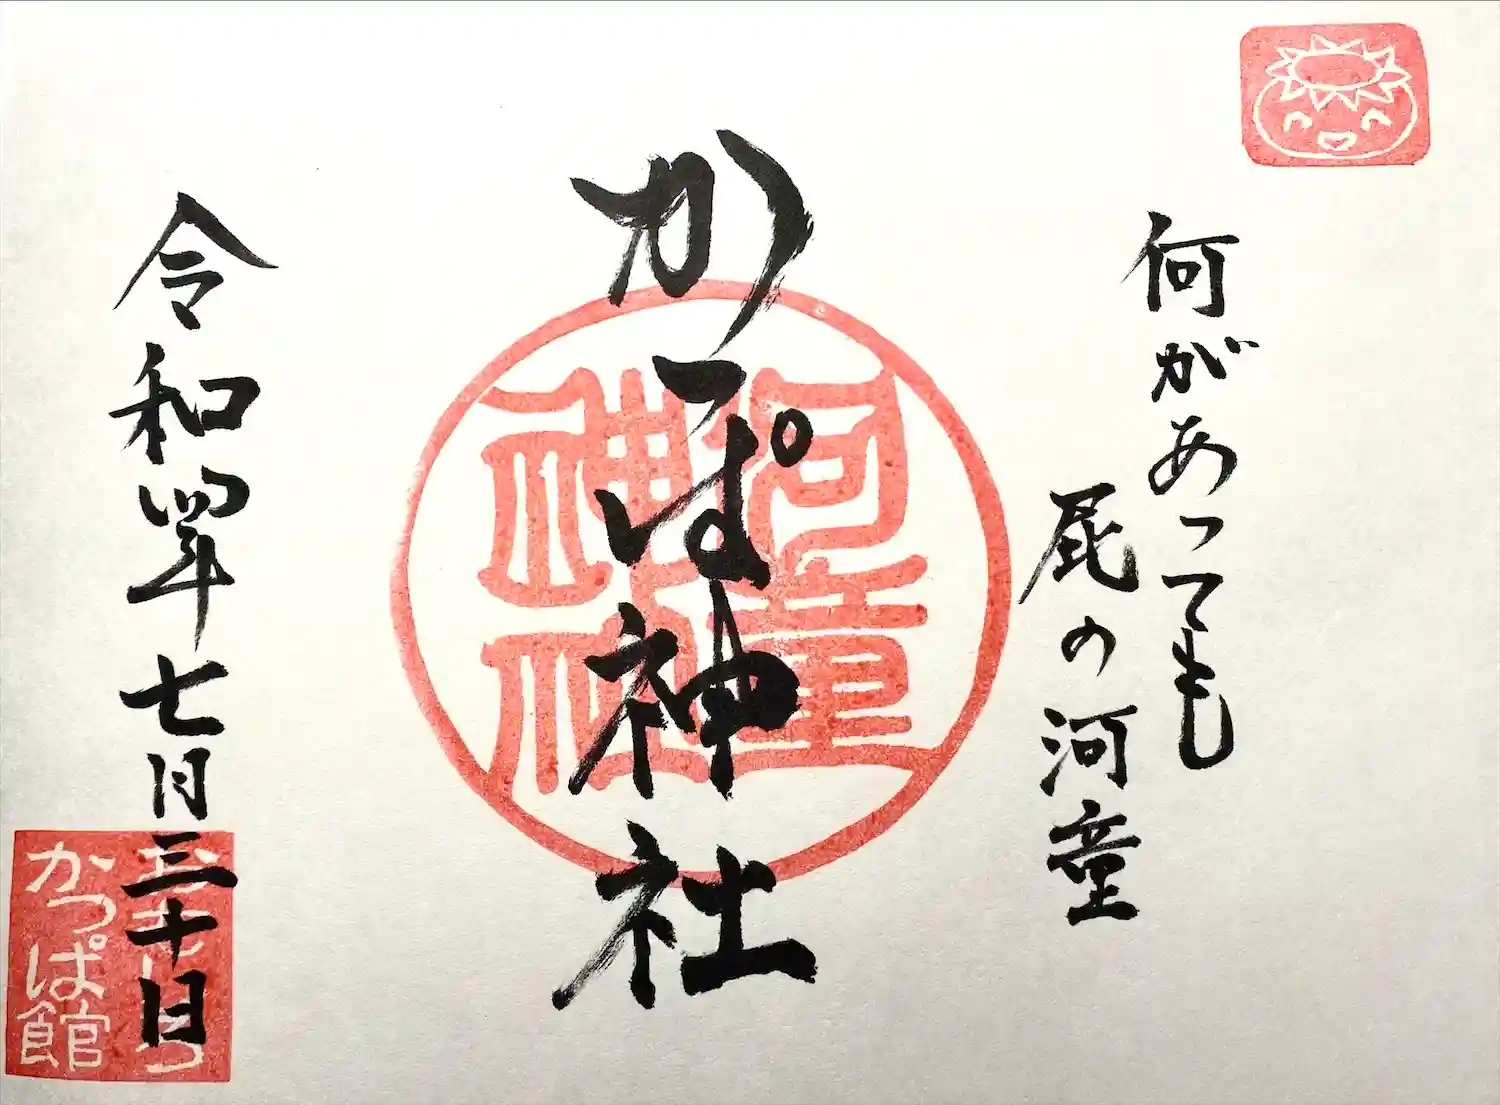 何があっても
屁の河童
かっぱ神社
河童
神社
令和四年七月三十日
おもしろ
かっぱ館